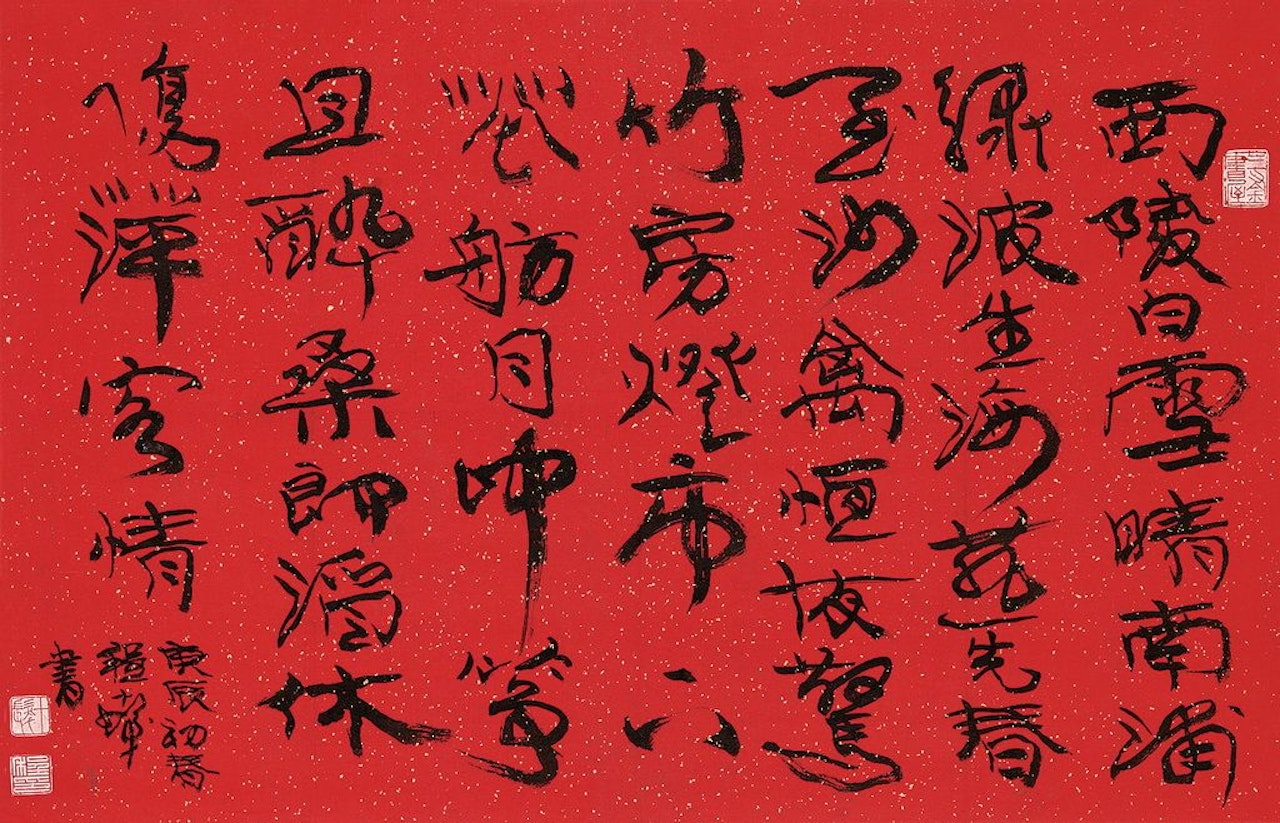 西陵白雪晴南浦
綠波生海燕先春
至沙禽恒夜驚
竹房燈市下
花舫月中箏
且醉桑郎酒休
傷萍客情
庚辰初春
程十髮
書